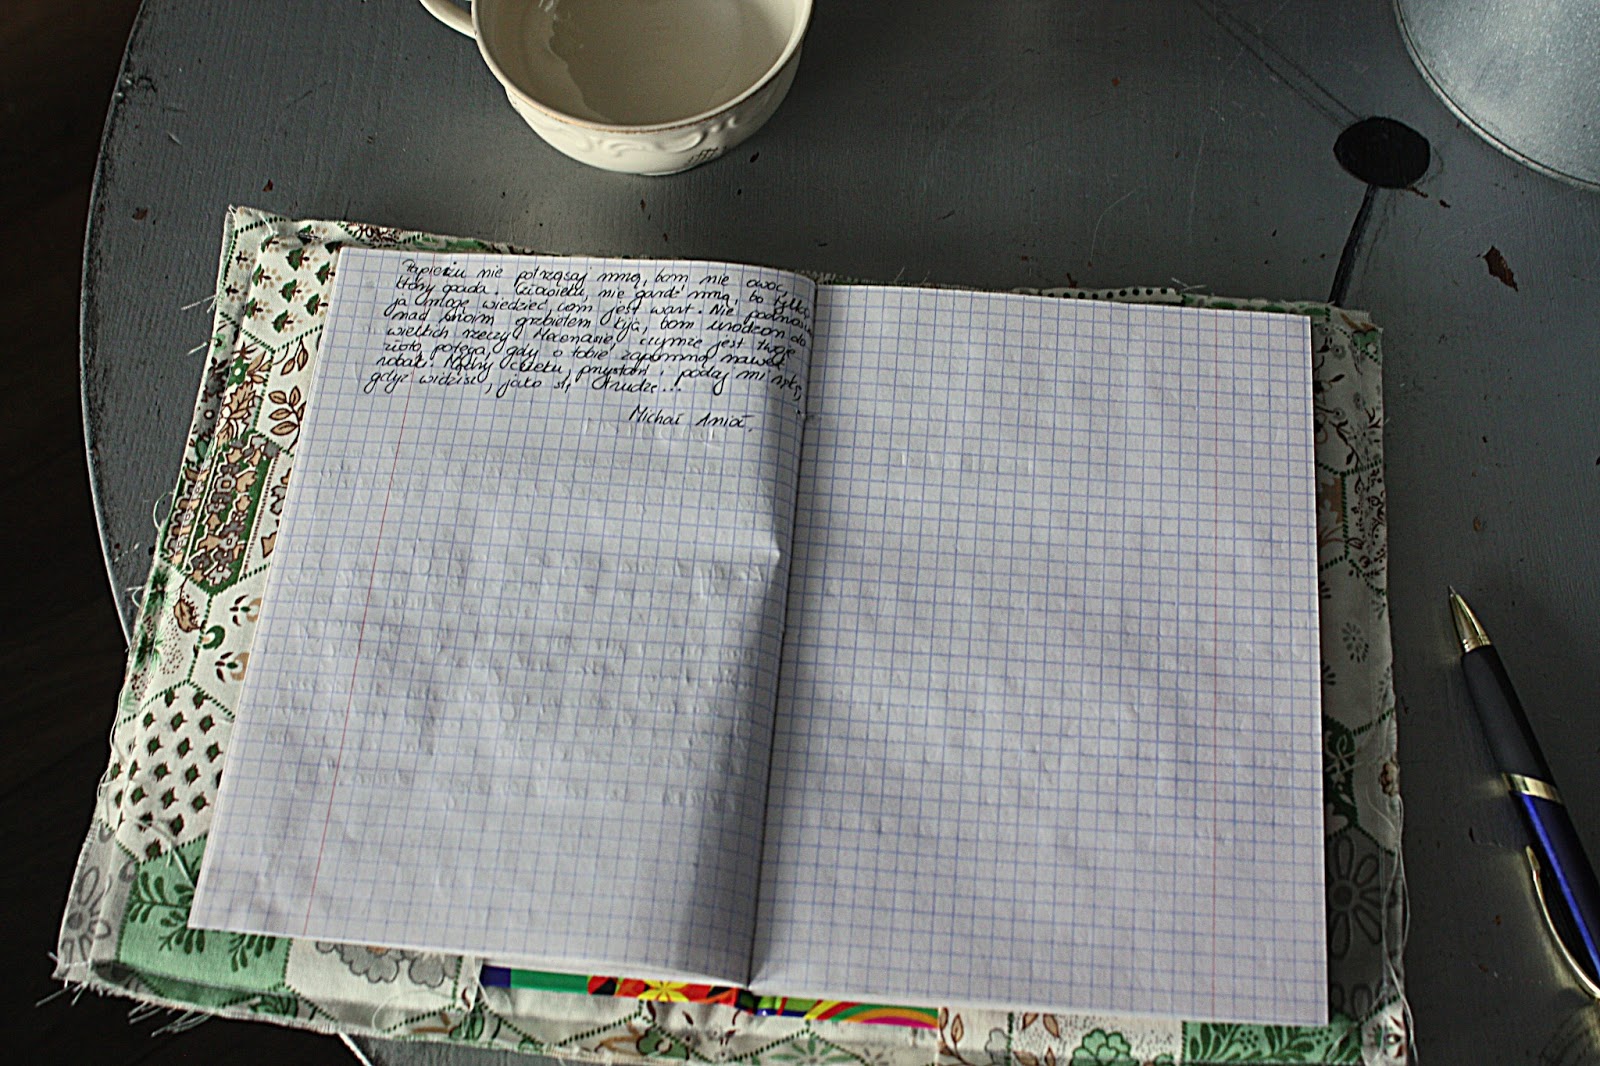 Papieżu nie potrząsaj mną, bom nie owoc,
który spada. Człowieku, nie gardź mną, bo tylko
ja mogę wiedzieć, com jest wart. Nie podnoś
nad moim grzbietem kija, bom urodzon do
wielkich rzeczy. Mecenasie, czymże jest twoje
złoto, potęga, gdy o tobie zapomną nawet
robaki. Mądry człeku, przystań i podaj mi rękę,
gdyż widzisz, jako się trudzę...
Michał Anioł.